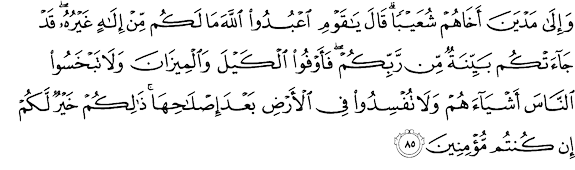 وَإِلَىٰ مَدۡيَنَ أَخَاهُمۡ شُعَيۡبٗاۚ قَالَ يَٰقَوۡمِ ٱعۡبُدُواْ ٱللَّهَ مَا لَكُم مِّنۡ إِلَٰهٍ غَيۡرُهُۥۖ قَدۡ
جَآءَتۡكُم بَيِّنَةٞ مِّن رَّبِّكُمۡۖ فَأَوۡفُواْ ٱلۡكَيۡلَ وَٱلۡمِيزَانَ وَلَا تَبۡخَسُواْ
ٱلنَّاسَ أَشۡيَآءَهُمۡ وَلَا تُفۡسِدُواْ فِي ٱلۡأَرۡضِ بَعۡدَ إِصۡلَٰحِهَاۚ ذَٰلِكُمۡ خَيۡرٞ لَّكُمۡ
إِن كُنتُم مُّؤۡمِنِينَ ٨٥